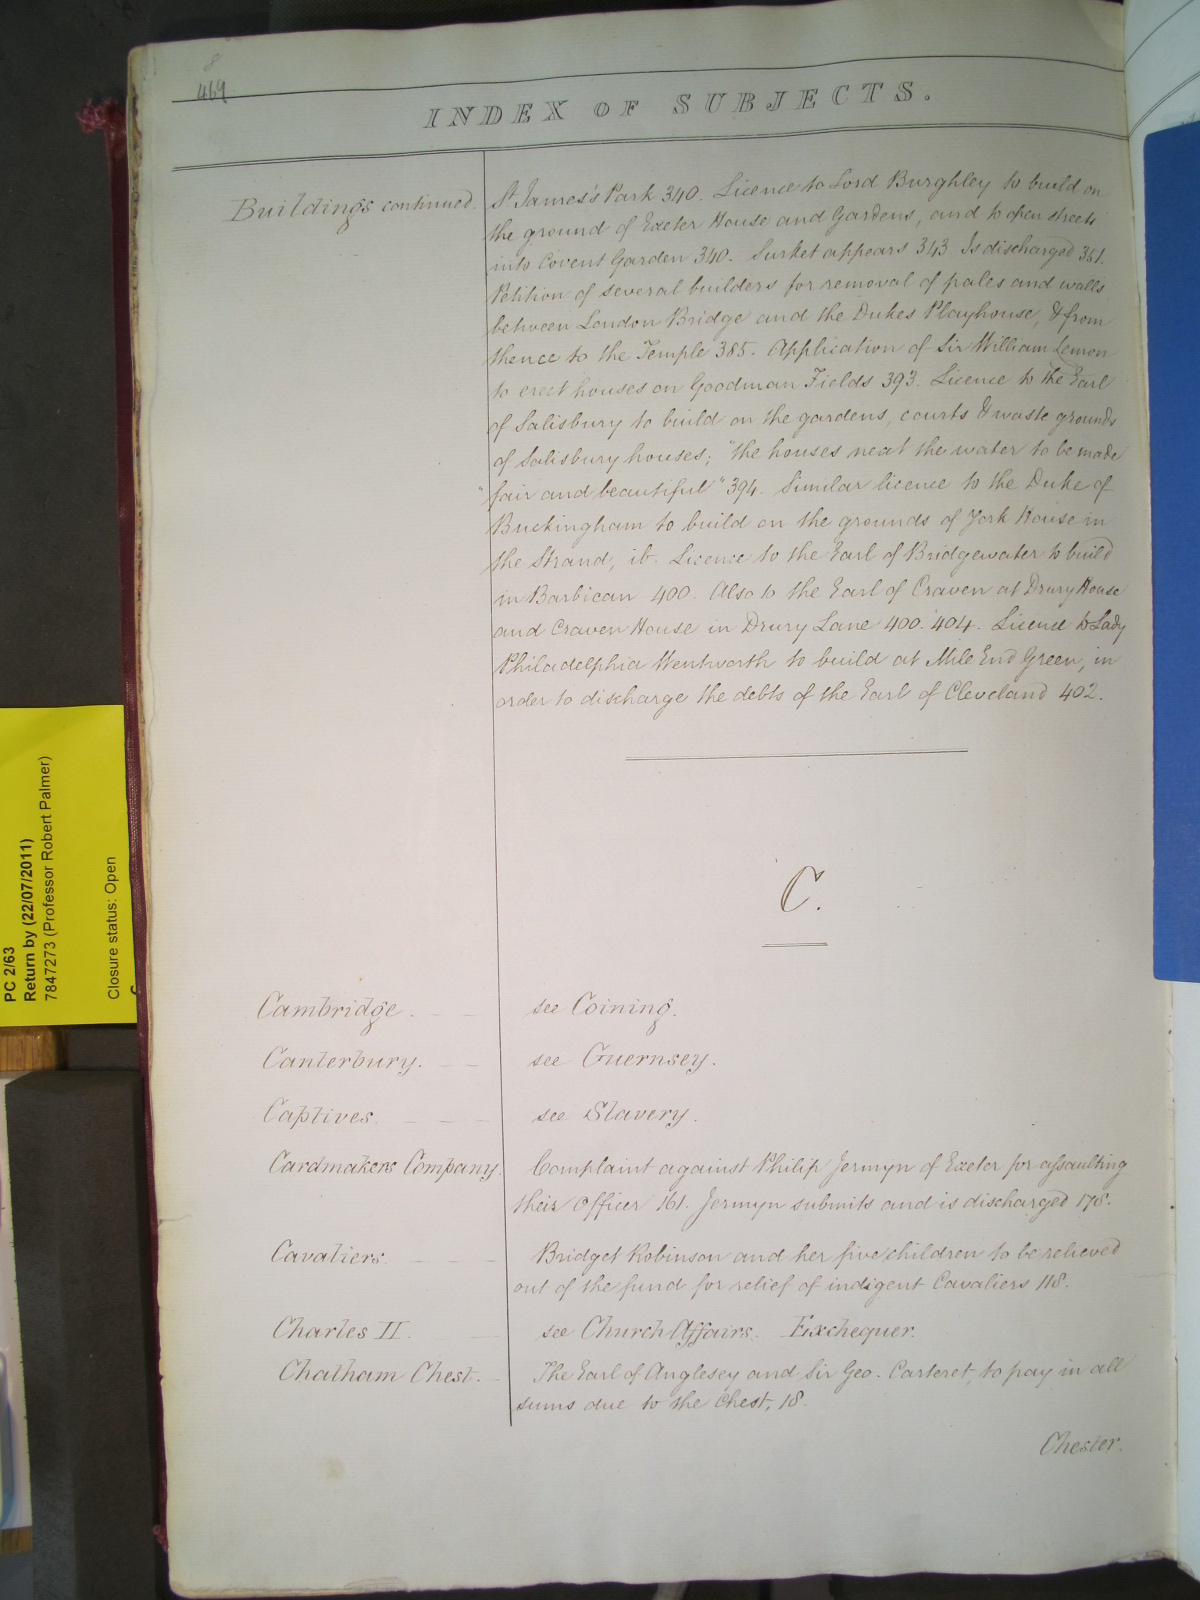 8
469
INDEX OF SUBJECTS.
Buildings continued.
St James's Park 340. Licence to Lord Burghley to build on
the ground of Exeter House and Gardens, and to open streets
into Covent Garden 340. Surket appears 343 Is discharged 351.
Petition of several builders for removal of pales and walls
between London Bridge and the Dukes Playhouse, & from
thence to the Temple 385. Application of Sir William Lemon
to erect houses on Goodman Fields 393. Licence to the Earl
of Salisbury to build on the gardens, courts & waste grounds
of Salisbury houses; "the houses neat the water to be made
"fair and beautiful" 394. Similar licence to the Duke of
Buckingham to build on the grounds of York House in
the Strand, ib. Licence to the Earl of Bridgewater to build
in Barbican 400. Also to the Earl of Craven at Drury House
and Craven House in Drury Lane 400. 404. Licence to Lady
Philadelphia Wentworth to build at Mile End Green, in
order to discharge the debts of the Earl of Cleveland 402.
C.
Cambridge. see Coining.
Canterbury. see Guernsey.
Captives. see Slavery.
Cardmakers Company. Complaint against Philip Jermyn of Exeter for assaulting
their Officer 161. Jermyn submits and is discharged 178.
Cavaliers. Bridget Robinson and her five children to be relieved
out of the fund for relief of indigent Cavaliers 118.
Charles II. see Church Affairs. Exchequer.
Chatham Chest. The Earl of Anglesey and Sir Geo. Carteret, to pay in all
sums due to the Chest, 18.
Chester.
PC 2/63
Return by (22/07/2011)
7847273 (Professor Robert Palmer)
Closure status: Open